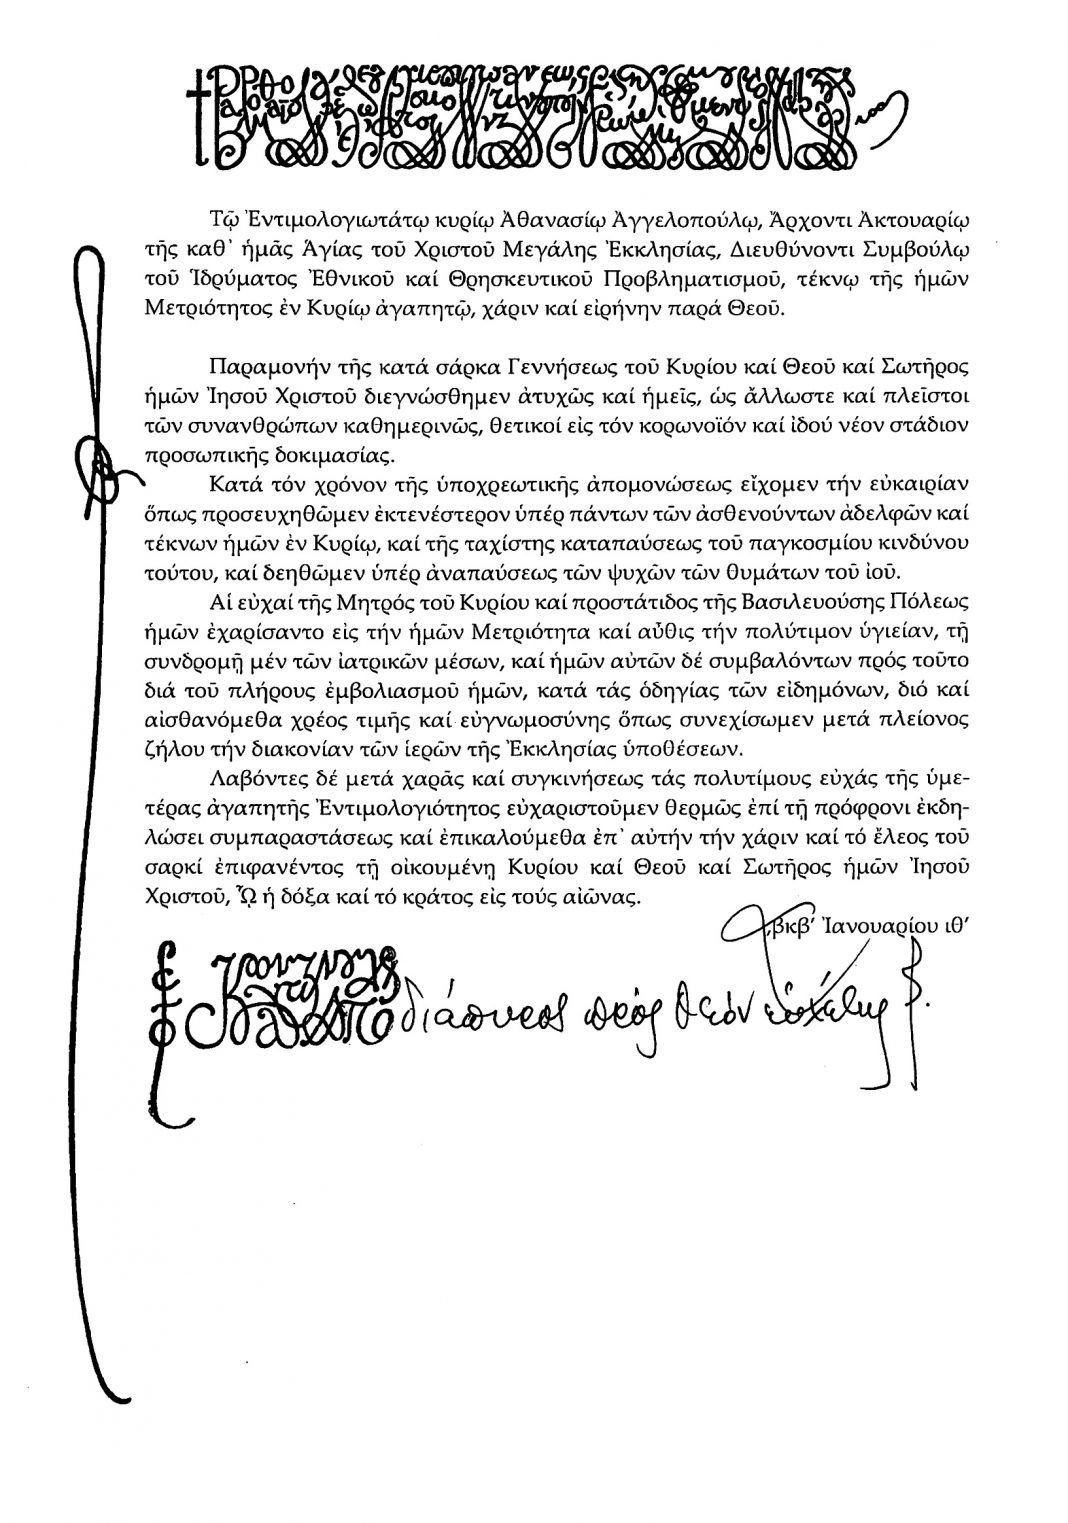 Τῷ Ἐντιμολογιωτάτῳ κυρίῳ Ἀθανασίῳ Ἀγγελοπούλῳ, Ἄρχοντι Ἀκτουαρίῳ
τῆς καθ᾽ ἡμᾶς Ἁγίας τοῦ Χριστοῦ Μεγάλης Ἐκκλησίας, Διευθύνοντι Συμβούλῳ
τοῦ Ἱδρύματος Ἐθνικοῦ καί Θρησκευτικοῦ Προβληματισμοῦ, τέκνῳ τῆς ἡμῶν
Μετριότητος ἐν Κυρίῳ ἀγαπητῷ, χάριν καί εἰρήνην παρά Θεοῦ.
Παραμονήν τῆς κατά σάρκα Γεννήσεως τοῦ Κυρίου καί Θεοῦ καί Σωτῆρος
ἡμῶν Ἰησοῦ Χριστοῦ διεγνώσθημεν ἀτυχῶς καί ἡμεῖς, ὡς ἄλλωστε καί πλεῖστοι
τῶν συνανθρώπων καθημερινῶς, θετικοί εἰς τόν κορωνοϊόν καί ἰδού νέον στάδιον
προσωπικῆς δοκιμασίας.
Κατά τόν χρόνον τῆς ὑποχρεωτικῆς ἀπομονώσεως εἴχομεν τήν εὐκαιρίαν
ὅπως προσευχηθῶμεν ἐκτενέστερον ὑπέρ πάντων τῶν ἀσθενούντων ἀδελφῶν καί
τέκνων ἡμῶν ἐν Κυρίῳ, καί τῆς ταχίστης καταπαύσεως τοῦ παγκοσμίου κινδύνου
τούτου, καί δεηθῶμεν ὑπέρ ἀναπαύσεως τῶν ψυχῶν τῶν θυμάτων τοῦ ἰοῦ.
Αἱ εὐχαί τῆς Μητρός τοῦ Κυρίου καί προστάτιδος τῆς Βασιλευούσης Πόλεως
ἡμῶν ἐχαρίσαντο εἰς τήν ἡμῶν Μετριότητα καί αὖθις τήν πολύτιμον ὑγιείαν, τῇ
συνδρομῇ μέν τῶν ἰατρικῶν μέσων, καί ἡμῶν αὐτῶν δέ συμβαλόντων πρός τοῦτο
διά τοῦ πλήρους ἐμβολιασμοῦ ἡμῶν, κατά τάς ὁδηγίας τῶν εἰδημόνων, διό καί
αἰσθανόμεθα χρέος τιμῆς καί εὐγνωμοσύνης ὅπως συνεχίσωμεν μετά πλείονος
ζήλου τήν διακονίαν τῶν ἱερῶν τῆς Ἐκκλησίας ὑποθέσεων.
Λαβόντες δέ μετά χαρᾶς καί συγκινήσεως τάς πολυτίμους εὐχάς τῆς ὑμε-
τέρας ἀγαπητῆς Ἐντιμολογιότητος εὐχαριστοῦμεν θερμῶς ἐπί τῇ πρόφρονι ἐκδη-
λώσει συμπαραστάσεως καί ἐπικαλούμεθα ἐπ᾽ αὐτήν τήν χάριν καί τό ἔλεος τοῦ
σαρκί ἐπιφανέντος τῇ οἰκουμένῃ Κυρίου καί Θεοῦ καί Σωτῆρος ἡμῶν Ἰησοῦ
Χριστοῦ, ᾯ ἡ δόξα καί τό κράτος εἰς τούς αἰῶνας.
͵βκβ' Ἰανουαρίου ιθ'
διάπυρος πρός Θεόν εὐχέτης